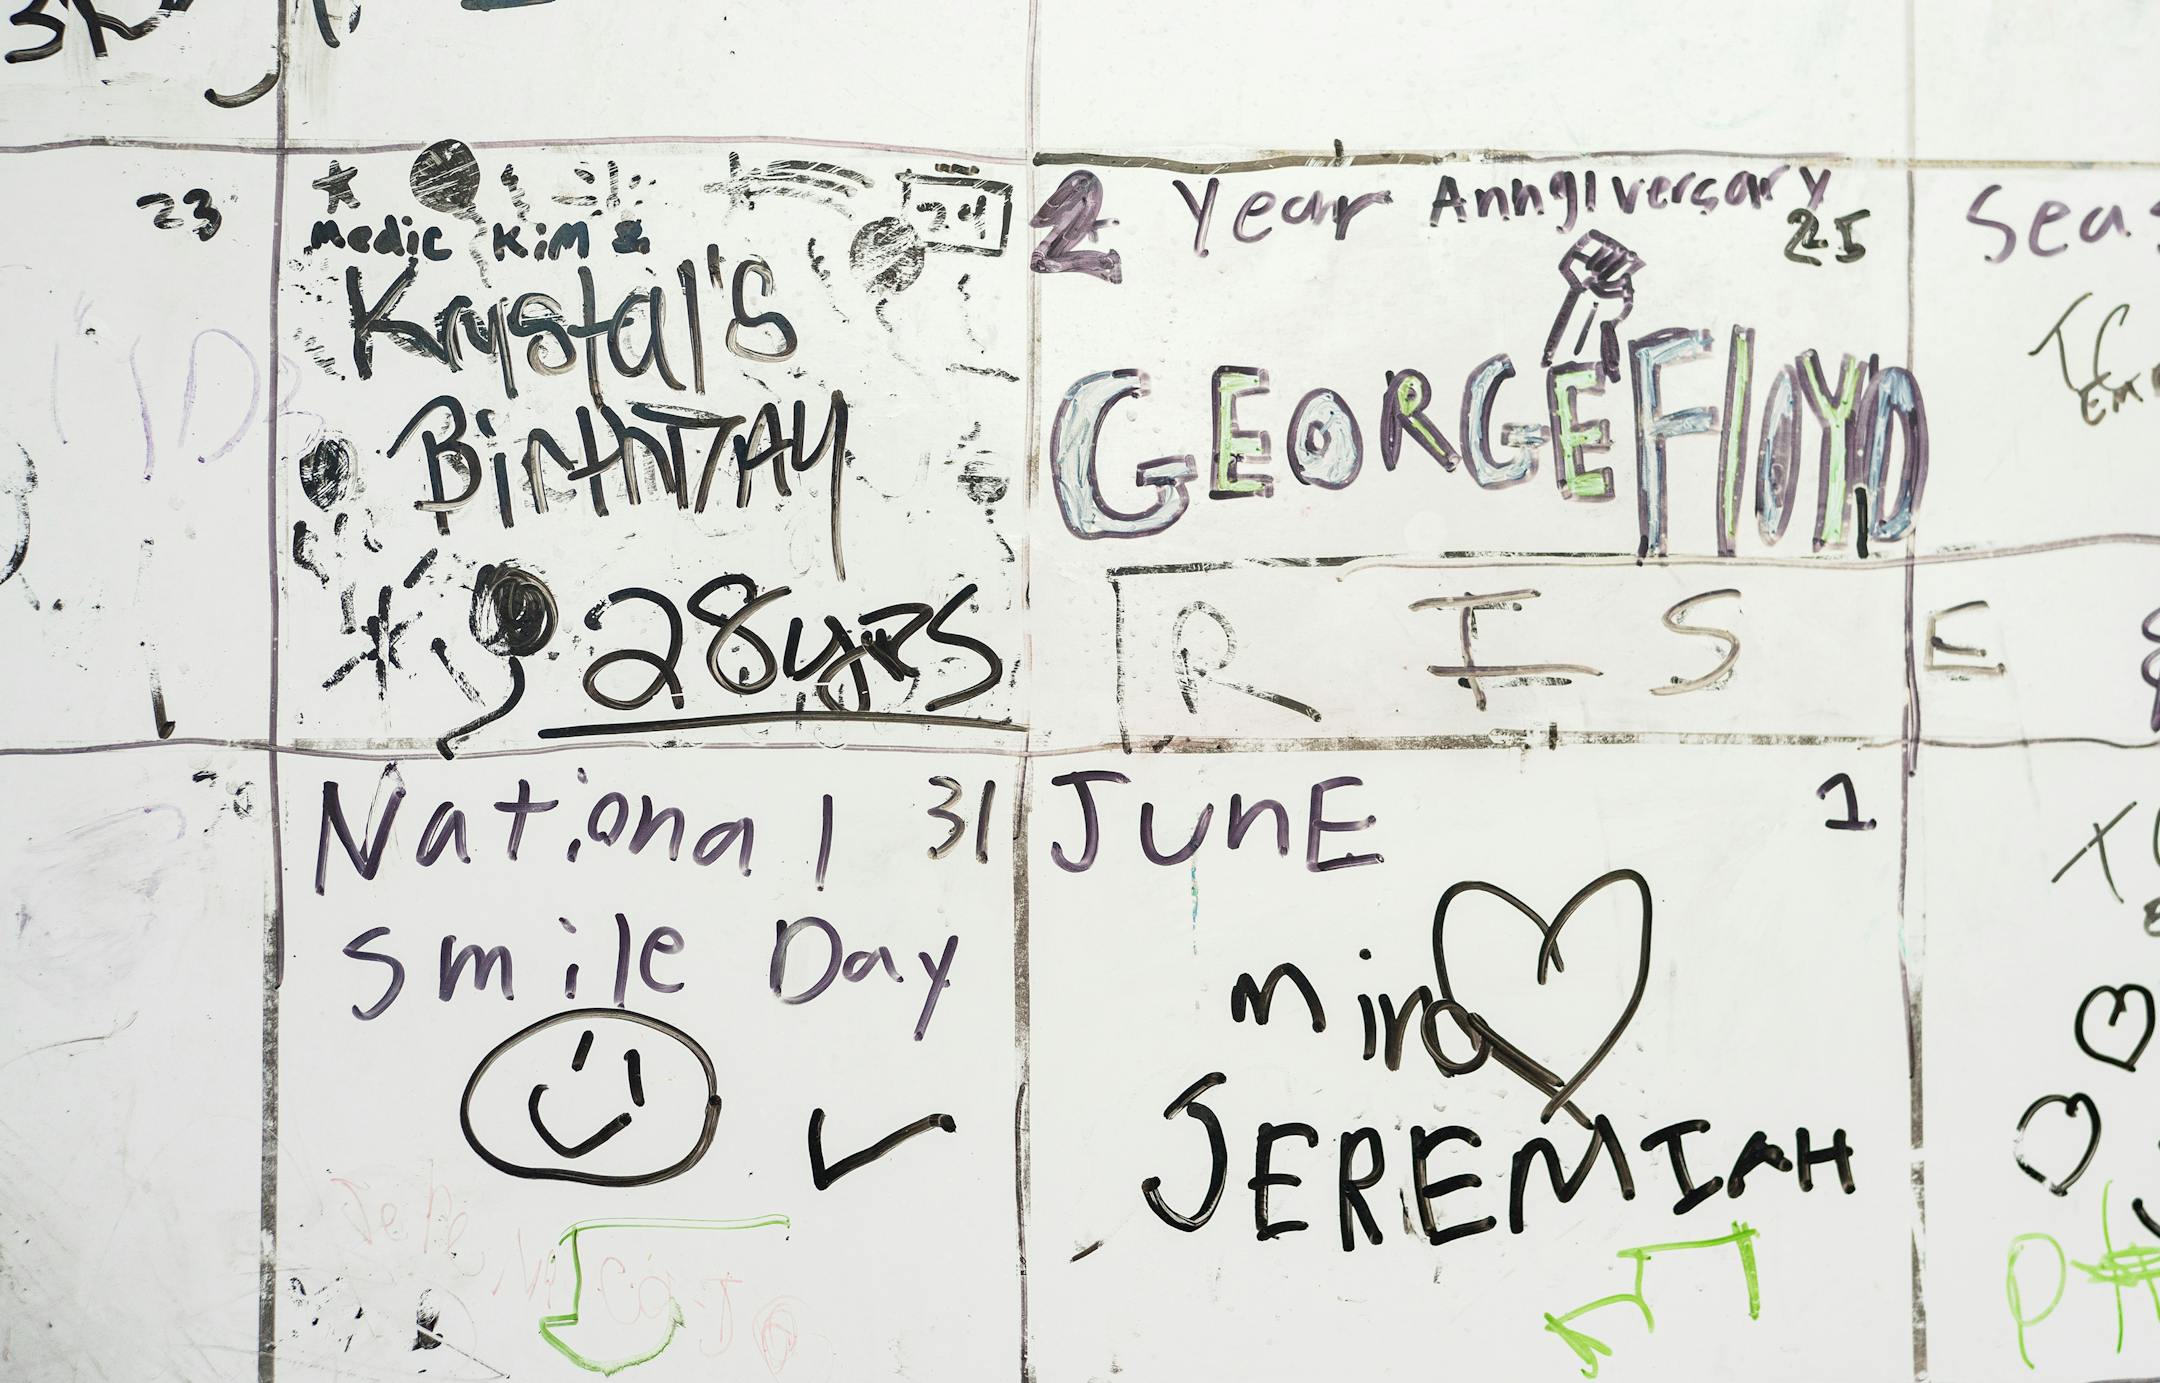 23
24
Medic Kim &
Krystal's
BirthDAY
28yrs
2 Year Anngiversary
25
GEORGE FLOYD
R I S E
Sea
National 31
Smile Day
JunE 1
mina
JEREMIAH